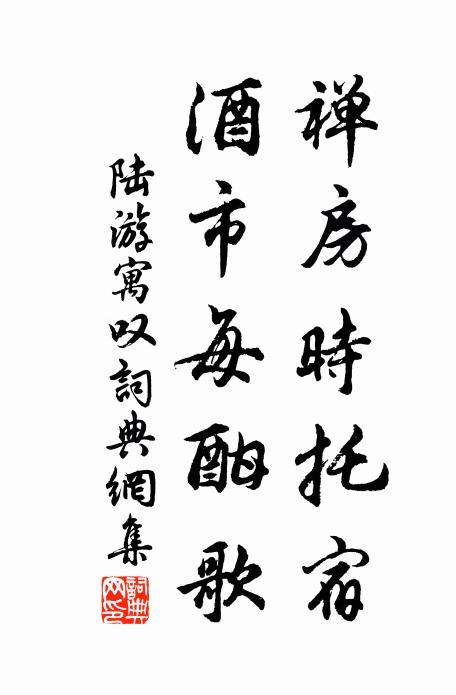 禅房時托宿
酒市每酣歌
陆游寓叹詞典網集
詞典网印